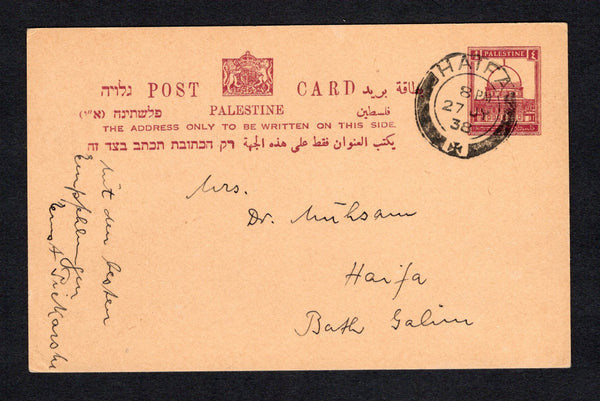 גלויה POST CARD بطاقة بريد
פלשתינה (א״י) PALESTINE فلسطين
THE ADDRESS ONLY TO BE WRITTEN ON THIS SIDE.
يكتب العنوان فقط على هذه الجهة רק הכתובת תכתב בצד זה
PALESTINE
HAIFA
8 PM
27 
38
Mrs.
Dr. Mühsam
Haifa
Bath Galim
Mit den besten
Empfehlungen
Ernst